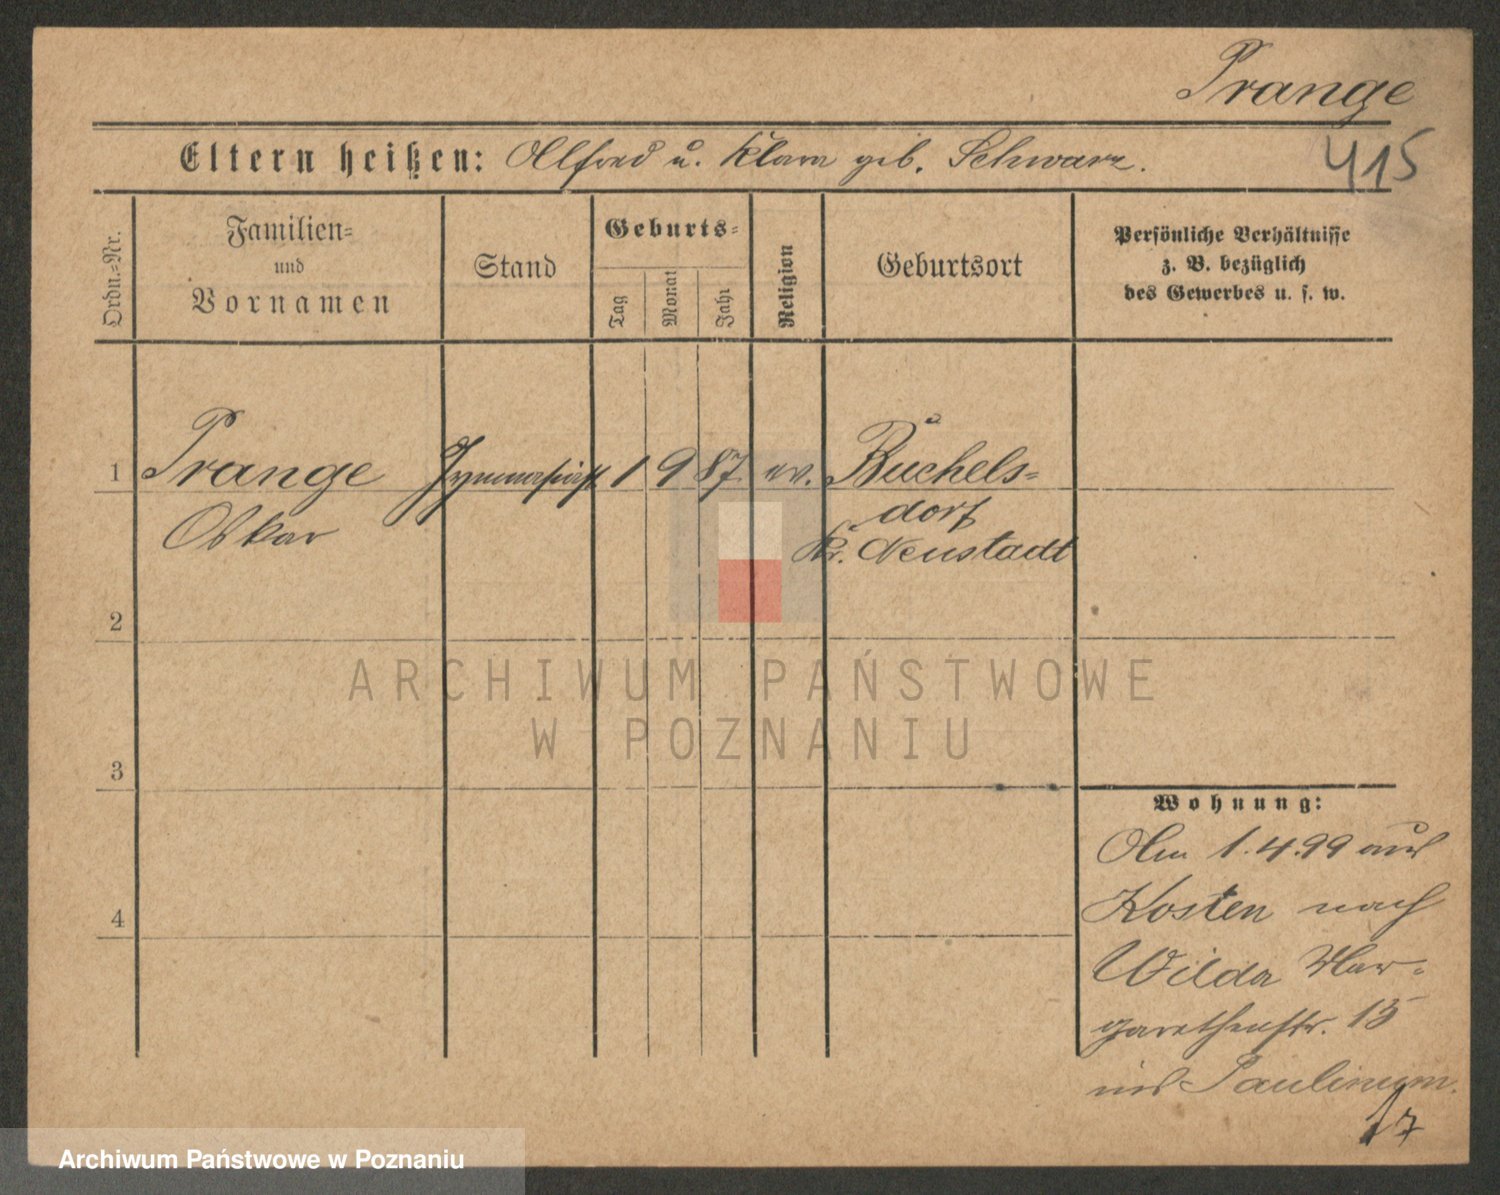 Prange
415
Eltern heißen: Alfred u. Klara geb. Schwarz.
Ordn.=Nr.
Familien=
und
Vornamen
Stand
Geburts=
Tag
Monat
Jahr
Religion
Geburtsort
Persönliche Verhältnisse
z. B. bezüglich
des Gewerbes u. s. w.
1 Prange Gymnasiast 1 9 87 ev. Büchels=
Oskar dorf
Kr. Neustadt
2
3
4
Wohnung:
Am 1.4.99 aus
Kosten nach
Wilda Mar-
garethenstr. 15
ins Paulinum.
17
ARCHIWUM PAŃSTWOWE
W POZNANIU
Archiwum Państwowe w Poznaniu